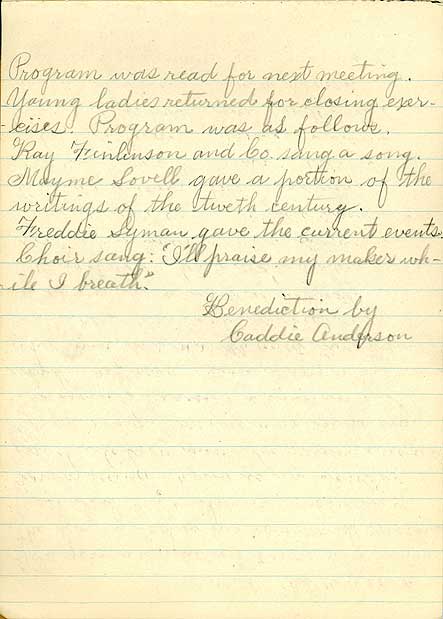 Program was read for next meeting.
Young ladies returned for closing exer-
-cises. Program was as follows.
Ray Finlinson and Co. sang a song.
Mayme Lovell gave a portion of the
writings of the tweth century.
Freddie Lyman gave the current events.
Choir sang: "I'll praise my maker wh-
-ile I breath."
Benediction by
Caddie Anderson